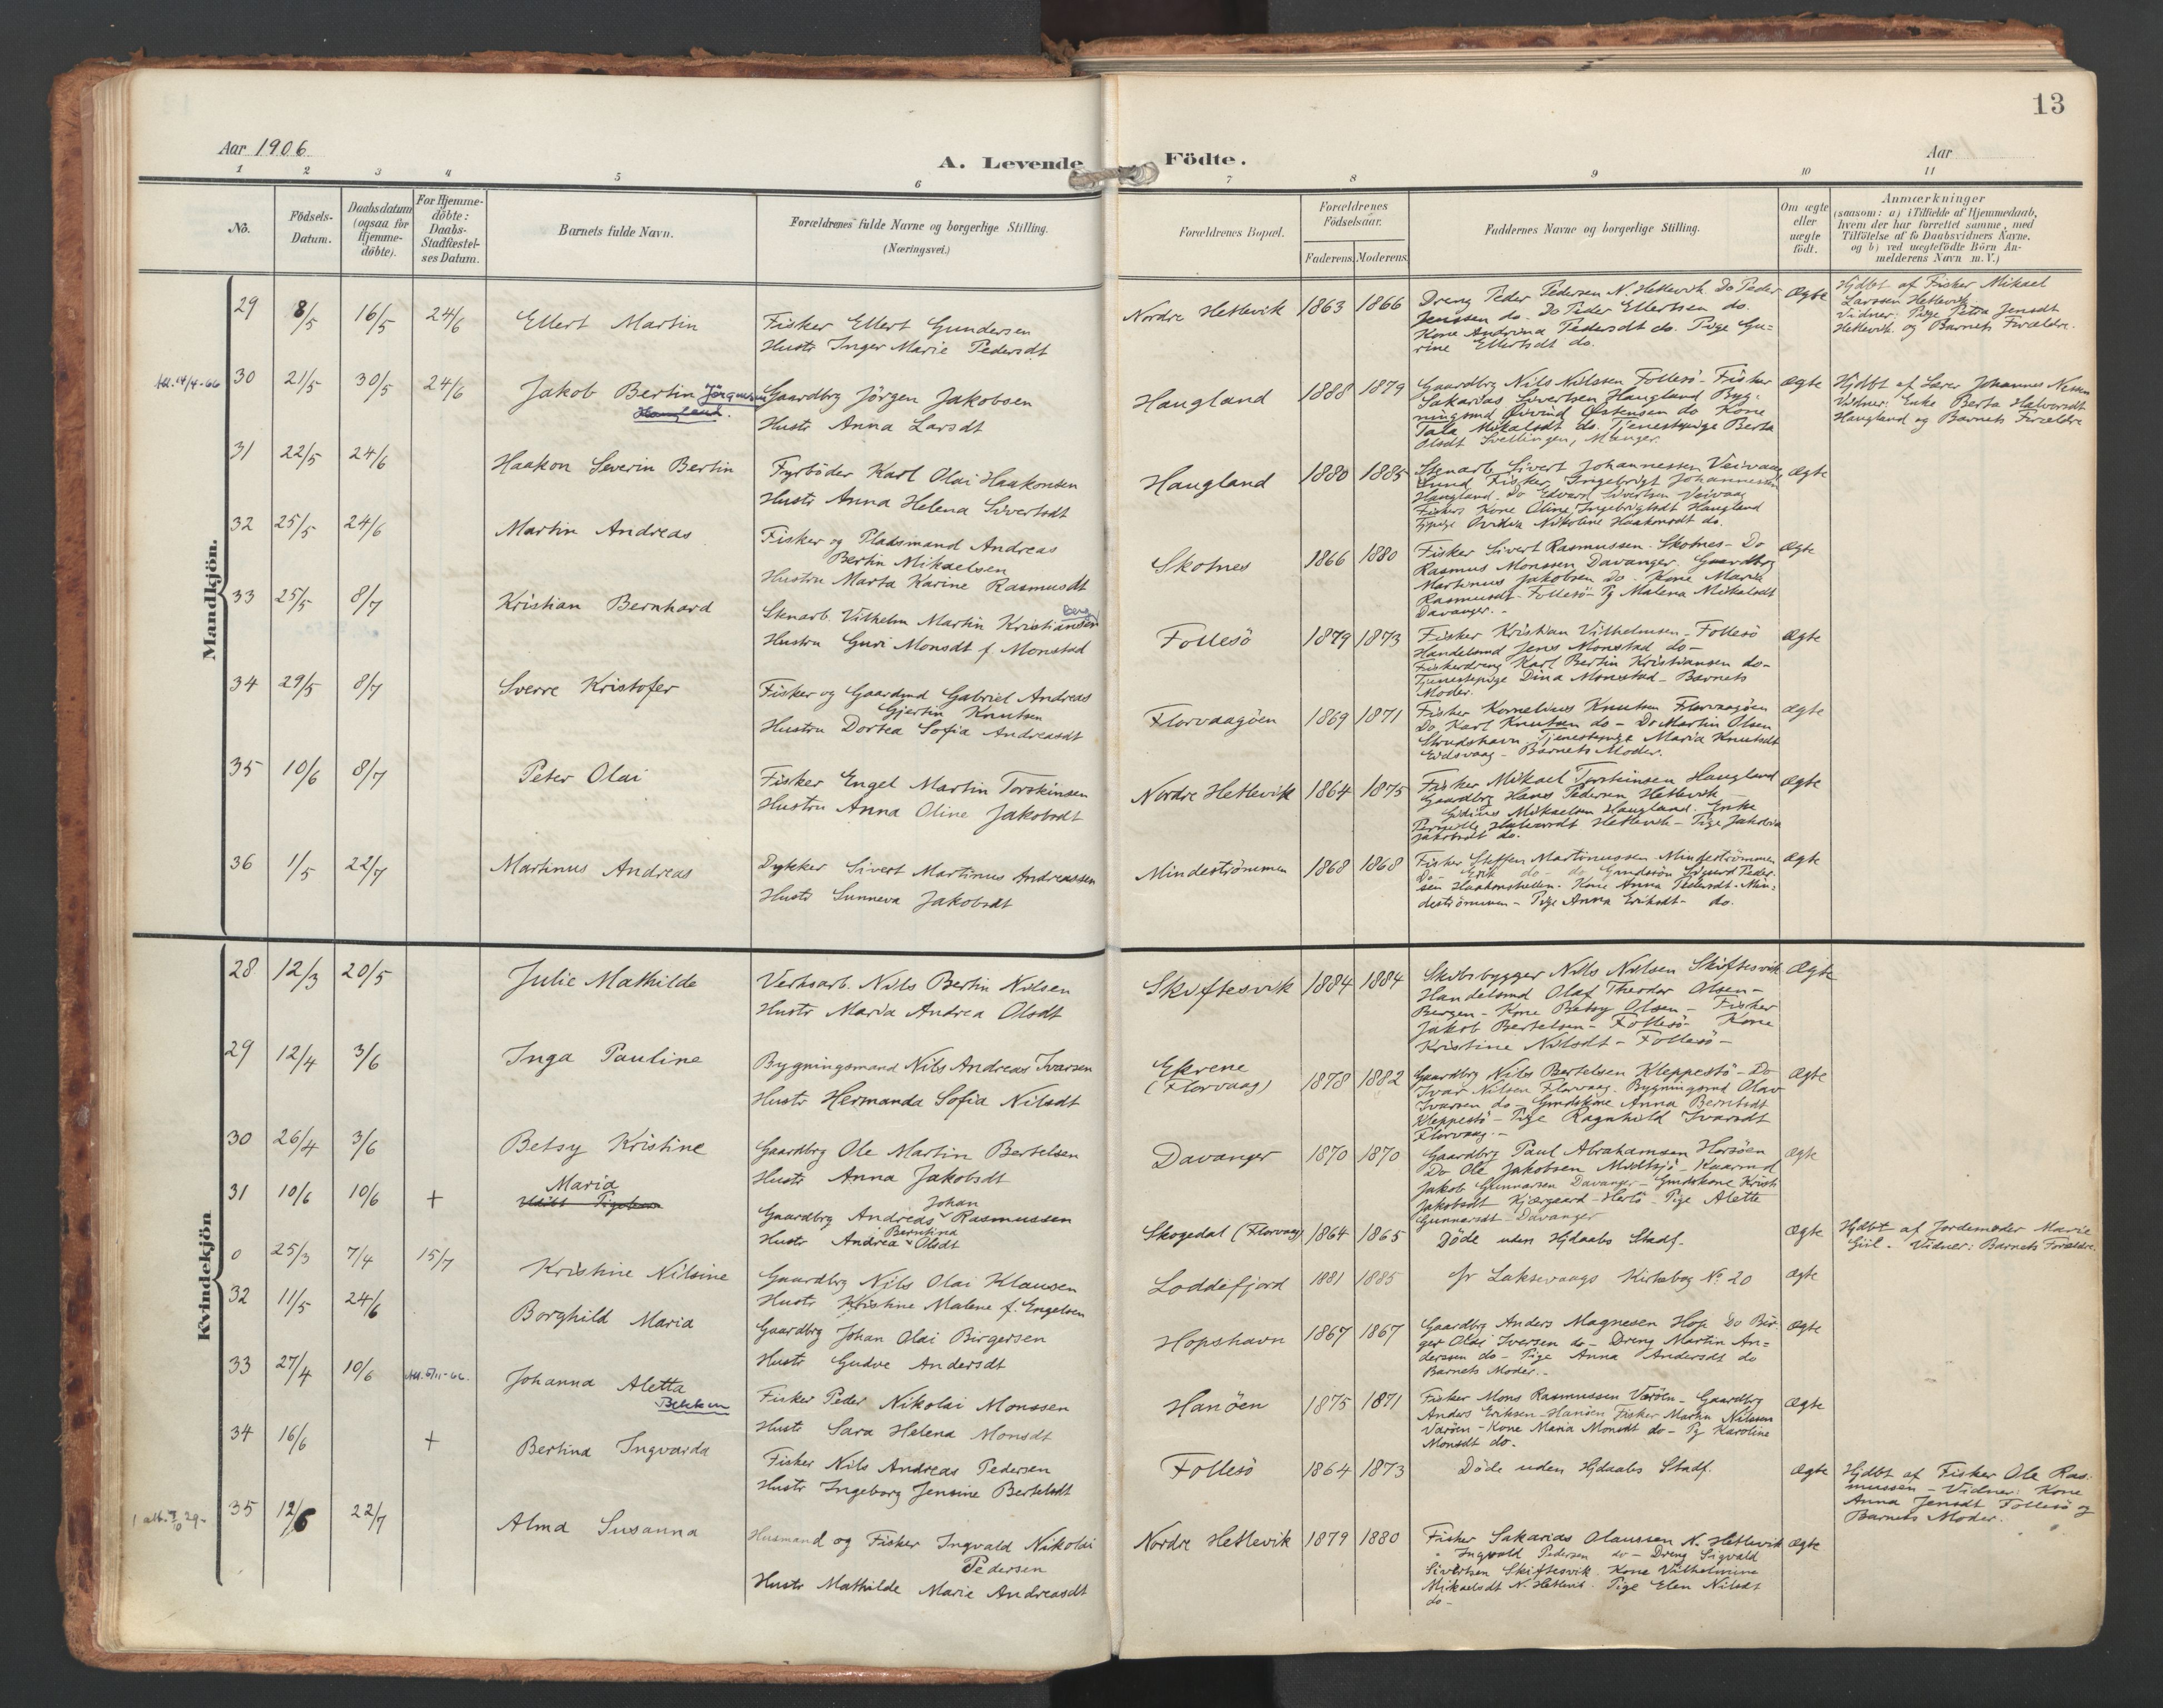 13
Aar 1906
A. Levende
Födte.
Aar
1 2 3 4 5 6 7 8 9 10 11
No.
Födsels-
Datum.
Daabsdatum
(ogsaa for
Hjemme-
döbte).
For Hjemme-
döbte:
Daabs-
Stadfæstel-
ses Datum.
Barnets fulde Navn.
Forældrenes fulde Navne og borgerlige Stilling.
(Næringsvei.)
Forældrenes Bopæl.
Forældrenes
Födselsaar.
Faderens. Moderens.
Faddernes Navne og borgerlige Stilling.
Om ægte
eller
uægte
født.
Anmærkninger
(saasom: a) i Tilfælde af Hjemmedaab,
hvem der har forrettet samme, med
Tilföielse af to Daabsvidners Navne,
og b) ved uægtefödte Börn An-
melderens Navn m. V.)
Mandkjön.
29 8/5 16/5 24/6 Ellert Martin
Fisker Ellert Gundersen
Hustr Inger Marie Pedersdt
Nordre Hetlevik 1863 1866
Dreng Peder Pedersen N. Hetlevik Do Peder
Jenssen do. Do Peder Ellertsen do.
Kone Andrina Pedersdt do. Pige Gu-
rine Ellertsdt do.
Ægte
Hjdbt af Fisker Mikael
Larssen Hetlevik
Vidner: Pige Petra Jensdt
Hetlevik og Barnets Forældre.
14/4-66 30 21/5 30/5 24/6 Jakob Bertin Jörgensen
Haugland.
Gaardbrg Jörgen Jakobsen
Hustr Anna Larsdt
Haugland 1888 1879
Gaardbrg Nils Nilssen Follesö - Fisker
Sakarias Sivertsen Haugland Byg-
ningsmd Øivind Østensen do Kone
Tala Mikalsdt do. Tjenestepige Berta
Olsdt Svellingen, Manger.
ægte
Hjdbt af Lærer Johannes Nessen
Vidner: Enke Berta Halversdt
Haugland og Barnets Forældre
31 22/5 24/6 Haakon Severin Bertin
Fyrböder Karl Olai Haakonsen
Hustr Anna Helena Sivertsdt
Haugland 1880 1885
Stenarb. Sivert Johannessen Veivaag
Sund Fisker Ingebrigt Johannessen
Haugland. Do Edvard Sivertsen Veivaag
Fiskers Kone Olina Ingebrigtsdt Haugland
Nikoline Haakonsdt do.
Ægte
32 25/5 24/6 Martin Andreas
Fisker og Pladsmand Andreas
Bertin Mikaelsen
Hustru Marta Karine Rasmusdt
Skotnes 1866 1880
Fisker Sivert Rasmussen. Skotnes - Do
Rasmus Monssen Davanger. Gaardbrg
Martinus Jakobsen do. Kone Marie
Rasmusdt. Follesö - Pg Malena Mikalsdt
Davanger. -
Ægte
33 25/5 8/7 Kristian Bernhard
Stenarb. Vilhelm Martin Kristiansen
Berg
Hustru Guri Monsdt f. Monstad
Follesö 1879 1873
Fisker Kristian Vilhelmsen - Follesö
Handelsmd Jens Monstad do -
Fiskerdreng Karl Bertin Kristiansen do -
Tjenestepige Dina Monstad - Barnets
Moder.
Ægte
34 29/5 8/7 Sverre Kristofer
Fisker og Gaardmd Gabriel Andreas
Gjertin Knutsen
Hustru Dortea Sofia Andreasdt
Florvaagöen 1869 1871
Fisker Kornelius Knutsen Florvaagöen
Do Karl Knutsen do - Do Martin Olsen
Strudshavn. Tjenestepige Maria Knutsdt
Eidsvaag - Barnets Moder.
ægte
35 10/6 8/7 Peter Olai
Fisker Engel Martin Torskinsen
Hustru Anna Oline Jakobsdt
Nordre Hetlevik 1864 1875
Fisker Mikael Torskinsen Haugland
Gaardbrg Hans Pedersen Hetlevik
Mikaelsen Haugland. Enke
Hetlevik - Pige
Jakobsdt do.
Ægte
36 1/5 22/7 Martinus Andreas
Dykker Sivert Martinus Andreassen
Hustr Sunneva Jakobsdt
Mindeströmmen 1868 1868
Fisker Steffen Martinussen Mindeströmmen
Do - Erik do - do Sigurd Peder-
sen Haakonshellen. Kone Anna Pedersdt. Min-
deströmmen - Pige Anna Eriksdt - do.
Ægte
Kvindekjön
28 12/3 20/5 Julie Mathilde
Verksarb. Nils Bertin Nilsen
Hustr Maria Andrea Olsdt
Skiftesvik 1884 1884
Skibsbygger Nils Nilsen Skiftesvik
Handelsmd Olaf Theodor Olsen -
Bergen - Kone Betsy Olsen - Fisker
Jakob Bertelsen - Follesö - Kone
Kristine Nilsdt - Follesö -
Ægte
29 12/4 3/6 Inga Pauline
Bygningsmand Nils Andreas Ivarsen
Hustr Hermanda Sofia Nilsdt
Ekrene
(Florvaag) 1878 1882
Gaardbrg Nils Bertelsen Kleppestö - Do
Ivar Nilsen Florvaag. Bygningsmd Olav
Ivarsen do - Gmdskone Anna Berntsdt
Kleppestö - Pige Ragnhild Ivarsdt
Florvaag. -
Ægte
30 26/4 3/6 Betsy Kristine
Gaardbrg Ole Martin Bertelsen
Hustr Anna Jakobsdt
Davanger 1870 1870
Gaardbrg Paul Abrahamsen Horsöen
Do Ole Jakobsen Midtsjö - Kaarmd
Jakob Gunnarsen Davanger - Gmdskone Kristi
Jakobsdt Kjærgaard - Hertö - Pige Alette
Gunnarsdt - Davanger
Ægte
31 10/6 10/6 + Maria
Udöbt Pigebarn
Gaardbrg Andreas Johan Rasmussen
Hustr Andrea Berntina Olsdt
Skogedal (Florvaag) 1864 1865
Döde uden Hjdaabs Stadf.
Ægte
Hjdbt af Jordemoder Marie
Giil. Vidner: Barnets Forældre.
0 25/3 7/4 15/7 Kristine Nilsine
Gaardbrg Nils Olai Klausen
Hustr Kristine Malene f. Engelsen
Loddefjord 1881 1885
fr Laksevaags Kirkebog No 20
Ægte
32 11/5 24/6 Borghild Maria
Gaardbrg Johan Olai Birgersen
Hustr Gudve Andersdt
Hopshavn 1867 1867
Gaardbrg Anders Magnesen Hop Do Bir-
ger Olai Iversen do - Dreng Martin An-
derssen do - Pige Anna Andersdt do
Barnets Moder. -
Ægte
33 27/4 10/6 Johanna Aletta
Bekken
Fisker Peder Nikolai Monssen
Hustr Sara Helena Monsdt
Hanöen 1875 1871
Fisker Mons Rasmussen Varöen - Gaardbrg
Anders Eriksen - Hanöen Fisker Martin Nilssen
Varöen - Kone Maria Monsdt do - Pg Karoline
Monsdt do -
Ægte
34 16/6 + Bertina Ingvarda
Fisker Nils Andreas Pedersen
Hustr Ingeborg Jensine Bertelsdt
Follesö 1864 1873
Döde uden Hjdaabs Stadf.
Ægte
Hjdbt af Fisker Ole Ras-
mussen - Vidner: Kone
Anna Jensdt Follesö og
Barnets Moder.
35 12/6 22/7 Alma Susanna
Husmand og Fisker Ingvald Nikolai
Pedersen
Hustr Mathilde Marie Andreasdt
Nordre Hetlevik 1879 1880
Fisker Sakarias Olaussen N. Hetlevik
" Ingvald Pedersen do - Dreng Sigvald
Sivertsen Skiftesvik. Kone Vilhelmine
Mikaelsdt N. Hetlevik. Pige Elen Nilsdt
do -
Ægte